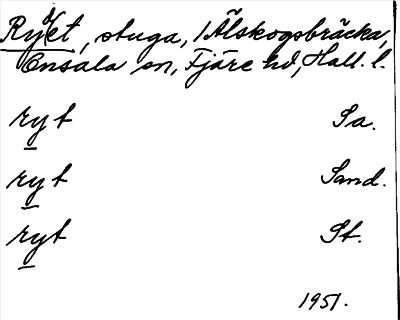 Ryet, stuga, i Älskogsbräcka,
Onsala sn, Fjäre hd, Hall. l.
ryt Sa.
ryt Sand.
ryt St.
1951.